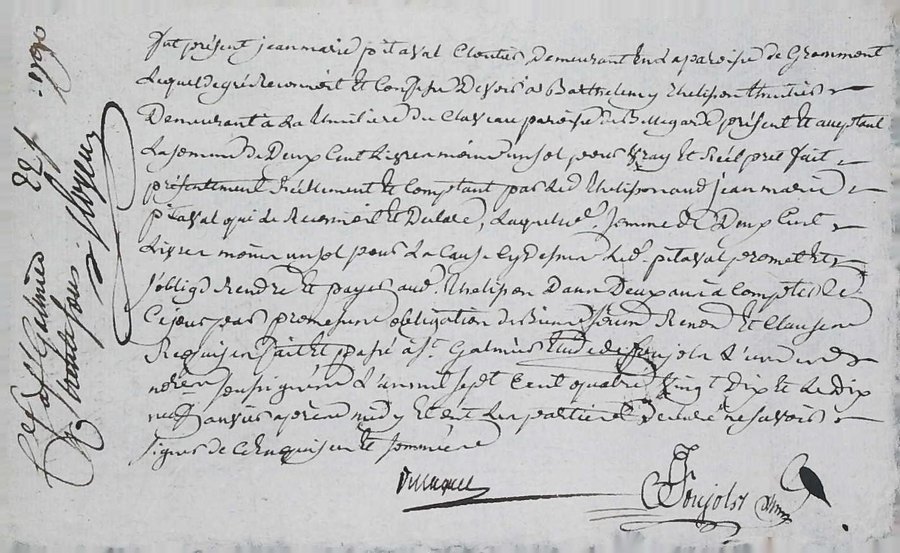 fut présent jean marie pitaval Cloutier Demeurant En La paroisse de Grammont
Lequel de gré Reconnoit Et Confesse Devoir à Barthelemy thelisson
Demeurant à La thuiliere du Claveau paroisse de Bellegarde présent Et acceptant
La somme de Deux Cent Livres moins un sol pour vray Et Réél prêt fait
présentement Réellement Et Comptant par Led. thelisson aud. jean marie
pitaval qui le Reconnoit Et Declare, Laquelle de. somme de Deux Cent
Livres moins un sol pour La Cause Cy dessus Led. pitaval promet Et
s'oblige Rendre Et payer aud. thelisson Dans Deux ans à Compter de
Ce jour par promesse obligation de Biens Renon. Et Clause
Requises fait Et passé à St. Galmier Etude de Soujols L'un des
nores. soussignés L'an mil sept Cent quatre vingt dix Et Le Dix
neuf janvier après midy Et ont Les parties Déclaré ne savoir
signer de Ce Enquises Et sommées
Soujols
Ce à St Galmier Le 22 1790